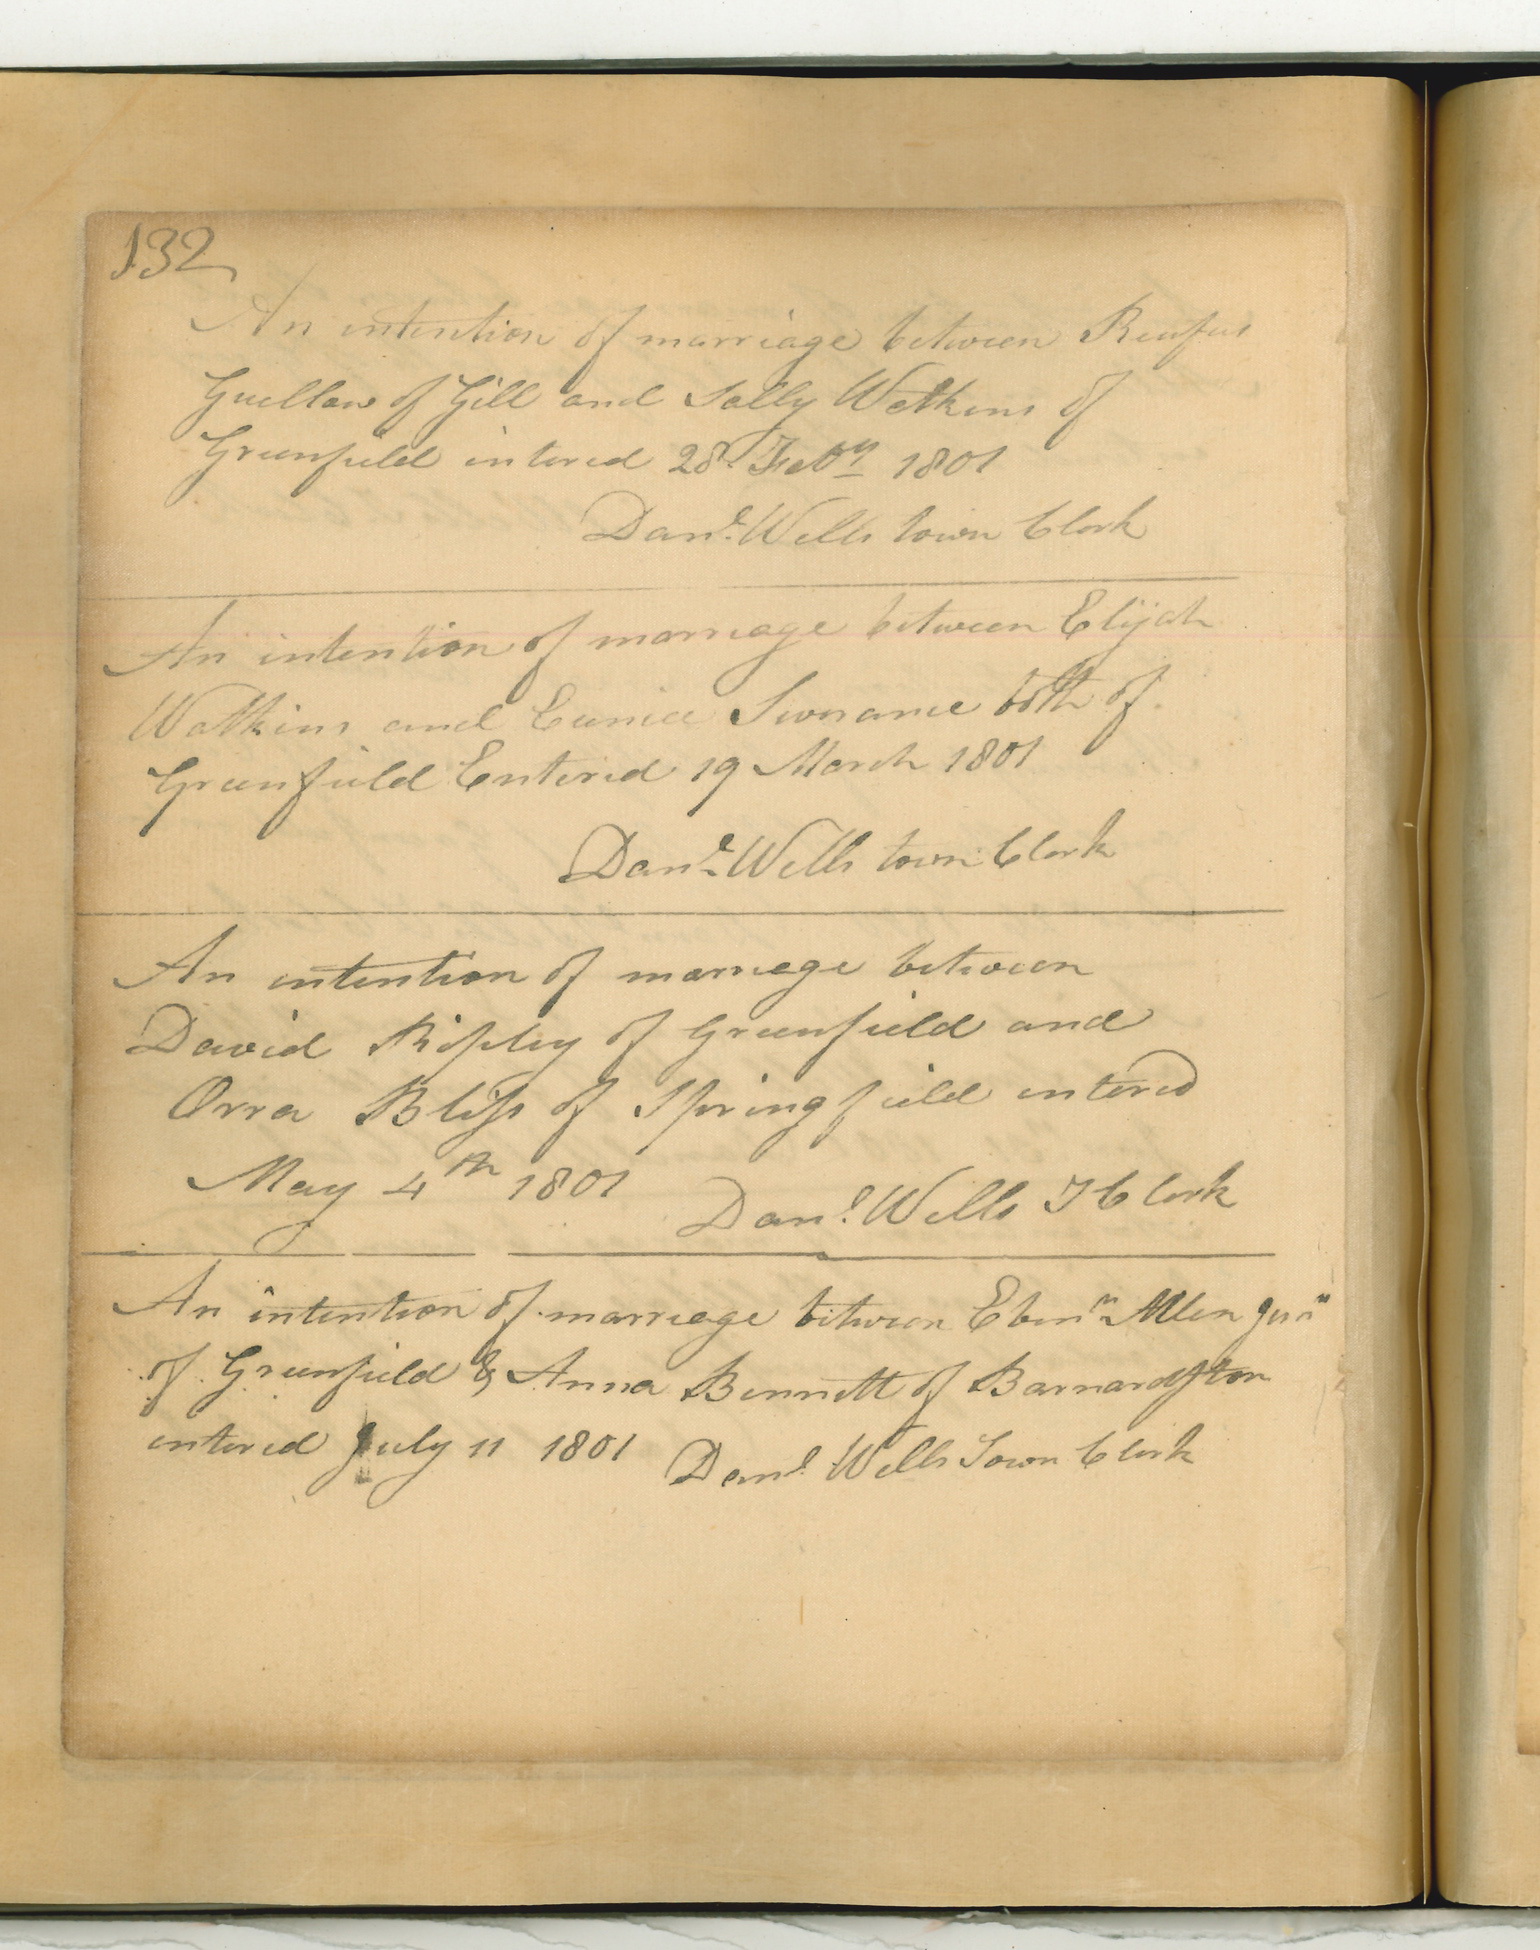 132
An intention of marriage between Rufus
Guellow of Gill and Sally Watkins of
Greenfield entered 28 Feby 1801
Danl. Wells town Clerk
An intention of marriage between Elijah
Watkins and Eunice Severance both of
Greenfield Entered 19 March 1801
Danl. Wells town Clerk
An intention of marriage between
David Ripley of Greenfield and
Orra Bliss of Springfield entered
May 4th 1801 Danl. Wells T Clerk
An intention of marriage between Ebenr Allen Junr
of Greenfield & Anna Bennett of Barnardston
entered July 11 1801 Danl. Wells Town Clerk